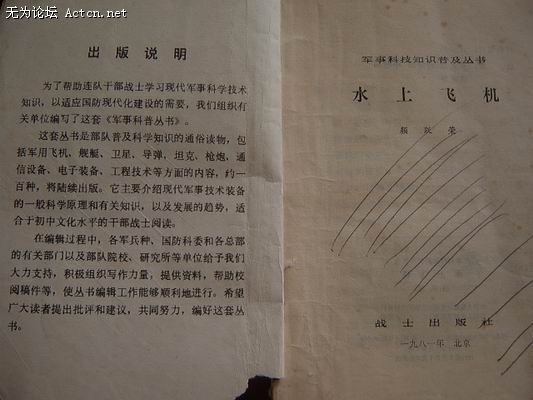 无为论坛 Actcn.net
出版说明
为了帮助连队干部战士学习现代军事科学技术
知识，以适应国防现代化建设的需要，我们组织有
关单位编写了这套《军事科普丛书》。
这套丛书是部队普及科学知识的通俗读物，包
括军用飞机、舰艇、卫星、导弹、坦克、枪炮、通
信设备、电子装备、工程技术等方面的内容，约一
百种，将陆续出版。它主要介绍现代军事技术装备
的一般科学原理和有关知识，以及发展的趋势，适
合于初中文化水平的干部战士阅读。
在编辑过程中，各军兵种、国防科委和各总部
的有关部门以及部队院校、研究所等单位给予我们
大力支持，积极组织写作力量，提供资料，帮助校
阅稿件等，使丛书编辑工作能够顺利地进行。希望
广大读者提出批评和建议，共同努力，编好这套丛
书。
军事科技知识普及丛书
水上飞机
战士出版社
一九八一年 北京
无为论坛 Actcn.net